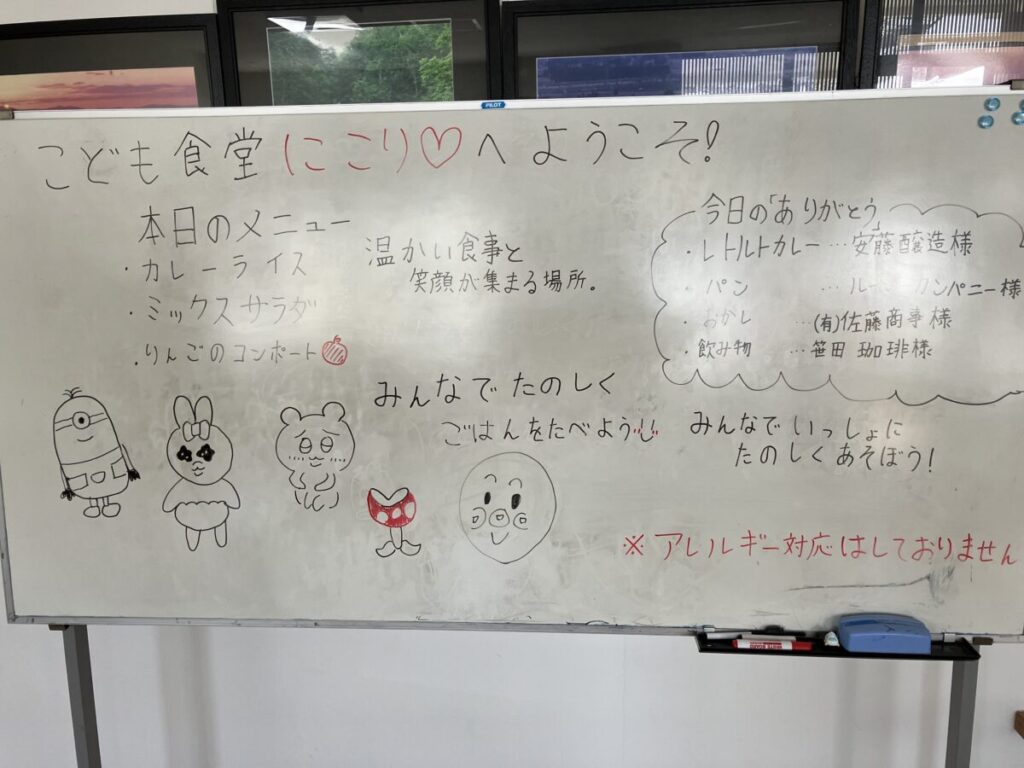 PILOT
こども食堂にこり♡へようこそ!
本日のメニュー
・カレーライス
・ミックスサラダ
・りんごのコンポート
温かい食事と
笑顔が集まる場所。
今日の「ありがとう」
・レトルトカレー…安藤醸造様
・パン …ル カンパニー様
・おかし …(有)佐藤商事様
・飲み物 …笹田珈琲様
みんなでたのしく
ごはんをたべよう
みんなでいっしょに
たのしくあそぼう!
※アレルギー対応はしておりません